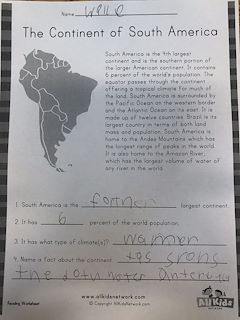 Name Weike
The Continent of South America
South America is the 4th largest
continent and is the southern portion of
the larger American continent. It contains
6 percent of the world's population. The
equator passes through the continent
offering a tropical climate for much of
the land. South America is surrounded by
the Pacific Ocean on the western border
and the Atlantic Ocean on the east. It is
made up of twelve countries. Brazil is its
largest country in terms of both land
mass and population. South America is
home to the Andes Mountains which has
the longest range of peaks in the world.
It is also home to the Amazon River,
which has the largest volume of water of
any river in the world.
1. South America is the largest continent.
2. It has 6 percent of the world population.
3. It has what type of climate(s)?
4. Name a fact about the continent.
www.allkidsnetwork.com
Reading Worksheet
Copyright © AllKidsNetwork.com
AllKids
NETWORK